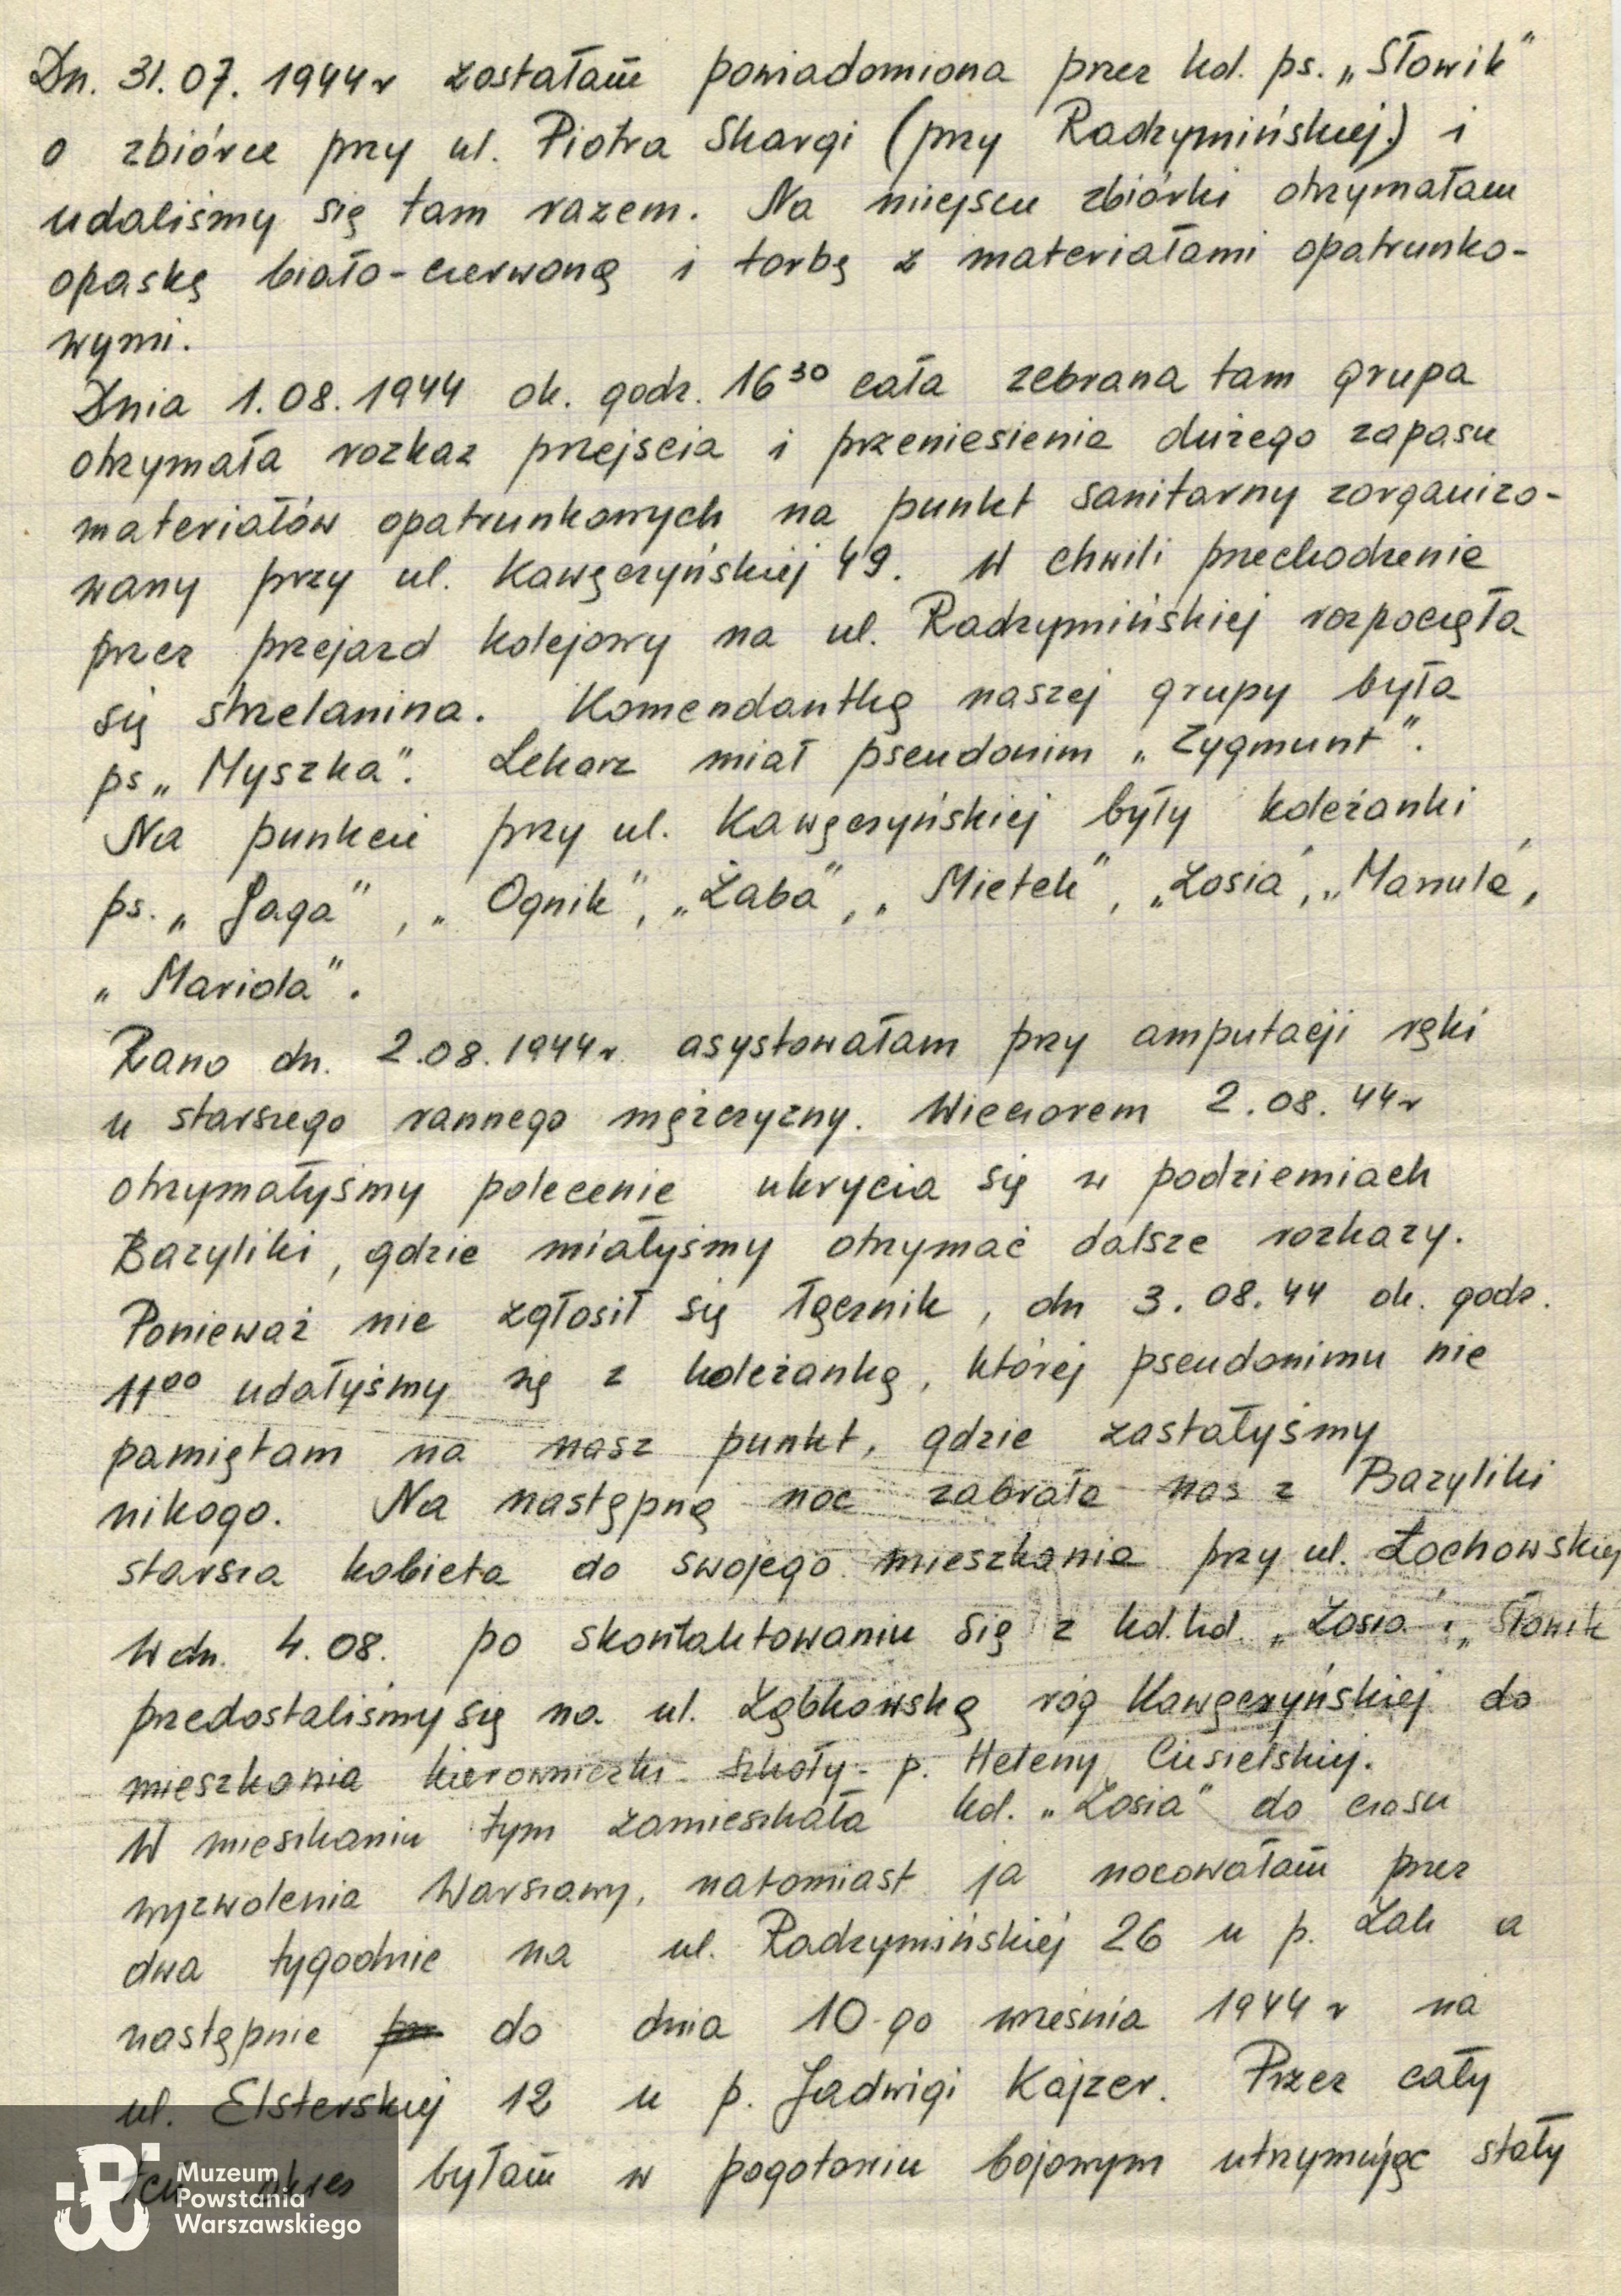 Dn. 31.07.1944r zostałam powiadomiona przez kol. ps. „Słowik"
o zbiórce przy ul. Piotra Skargi (przy Radzymińskiej) i
udaliśmy się tam razem. Na miejscu zbiórki otrzymałam
opaskę biało-czerwoną i torbę z materiałami opatrunko-
wymi.
Dnia 1.08.1944 ok. godz. 16³⁰ cała zebrana tam grupa
otrzymała rozkaz przejścia i przeniesienia dużego zapasu
materiałów opatrunkowych na punkt sanitarny zorganizo-
wany przy ul. Kawęczyńskiej 49. W chwili przechodzenia
przez przejazd kolejowy na ul. Radzymińskiej rozpoczęła
się strzelanina. Komendantką naszej grupy była
ps „Myszka". Lekarz miał pseudonim „Zygmunt".
Na punkcie przy ul. Kawęczyńskiej były koleżanki
ps. „Jaga", „Ognik", „Żaba", „Mietek", „Zosia", „Marnula",
„Mariola".
Rano dn. 2.08.1944r. asystowałam przy amputacji ręki
u starszego rannego mężczyzny. Wieczorem 2.08.44r
otrzymałyśmy polecenie ukrycia się w podziemiach
Bazyliki, gdzie miałyśmy otrzymać dalsze rozkazy.
Ponieważ nie zgłosił się łącznik, dn 3.08.44 ok. godz.
11⁰⁰ udałyśmy się z koleżanką, której pseudonimu nie
pamiętam na nasz punkt, gdzie zastałyśmy
nikogo. Na następną noc zabrała nas z Bazyliki
starsza kobieta do swojego mieszkania przy ul. Łochowskiej
W dn. 4.08. po skontaktowaniu się z kol.kol. „Zosia" i „Słowik
przedostaliśmy się na ul. Ząbkowską róg Kawęczyńskiej do
mieszkania kierowniczki szkoły p. Heleny Ciesielskiej.
W mieszkaniu tym zamieszkała kol. „Zosia" do czasu
wyzwolenia Warszawy, natomiast ja nocowałam przez
dwa tygodnie na ul. Radzymińskiej 26 u p. Żak a
następnie do dnia 10-go września 1944r na
ul. Elsterskiej 12 u p. Jadwigi Kajzer. Przez cały
ten okres byłam w pogotowiu bojowym utrzymując stały
Muzeum
Powstania
Warszawskiego